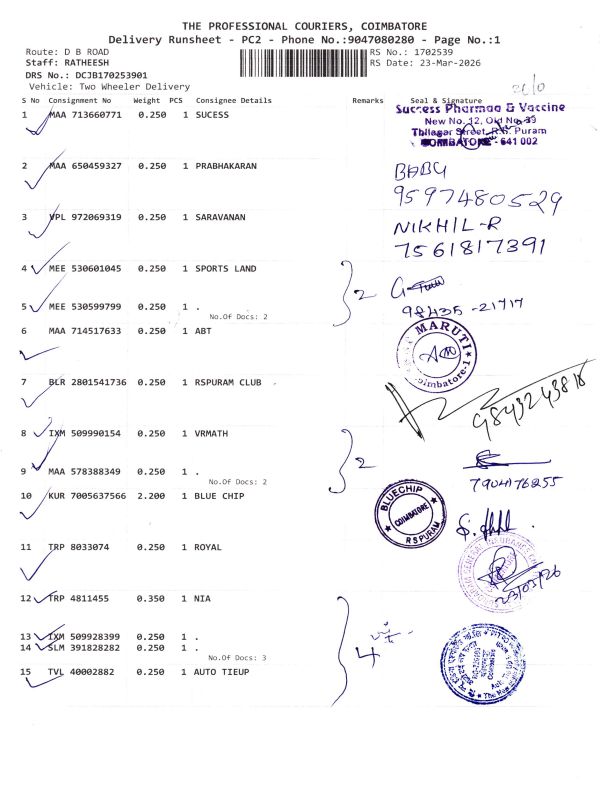 THE PROFESSIONAL COURIERS, COIMBATORE
Delivery Runsheet - PC2 - Phone No.:9047080280 - Page No.:1
Route: D B ROAD RS No.: 1702539
Staff: RATHEESH RS Date: 23-Mar-2026
DRS No.: DCJB170253901
Vehicle: Two Wheeler Delivery
S No Consignment No Weight PCS Consignee Details Remarks Seal & Signature
1 MAA 713660771 0.250 1 SUCESS
Success Pharmaa & Vaccine
New No. 12, Old No. 39
Thilagar Street, R.S. Puram
COIMBATORE - 641 002
2 MAA 650459327 0.250 1 PRABHAKARAN
BABU
9597480529
3 VPL 972069319 0.250 1 SARAVANAN
NIKHIL-R
7561817391
4 MEE 530601045 0.250 1 SPORTS LAND
2
5 MEE 530599799 0.250 1 .
98435-21717
No.Of Docs: 2
6 MAA 714517633 0.250 1 ABT
MARUTI
Coimbatore-1
7 BLR 2801541736 0.250 1 RSPURAM CLUB
9843243818
8 IXM 509990154 0.250 1 VRMATH
2
9 MAA 578388349 0.250 1 .
No.Of Docs: 2
7904176255
10 KUR 7005637566 2.200 1 BLUE CHIP
BLUECHIP
COIMBATORE
RSPURAM
11 TRP 8033074 0.250 1 ROYAL
23/03/26
12 TRP 4811455 0.350 1 NIA
13 IXM 509928399 0.250 1 .
14 SLM 391828282 0.250 1 .
4
No.Of Docs: 3
15 TVL 40002882 0.250 1 AUTO TIEUP